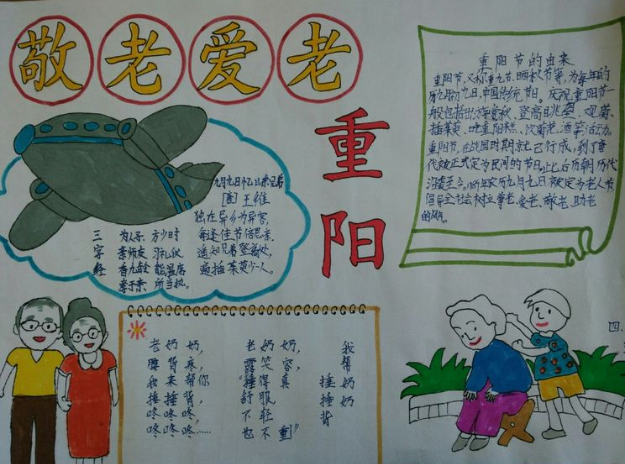 敬老爱老
重阳
重阳节的由来
重阳节，又称重九节、晒秋节等，为每年的
农历九月九日，中国传统节日。庆祝重阳节一
般包括出游赏秋、登高远眺、观菊、
插茱萸、吃重阳糕、饮菊花酒等活动。
重阳节，在战国时期就已形成，到了唐
代被正式定为民间的节日，此后历朝历代
沿袭至今。
九月九日忆山东兄弟
王维
独在异乡为异客，
每逢佳节倍思亲。
遥知兄弟登高处，
遍插茱萸少一人。
三字经
为人子 方少时
亲师友 习礼仪
香九龄 能温席
孝于亲 所当执
我帮奶奶捶捶背
老奶奶，
腰背疼，
我来帮你
捶捶背，
咚咚咚，
咚咚咚……
老奶奶，
露笑容，
捶得真
舒服，
不轻
也不重
四、